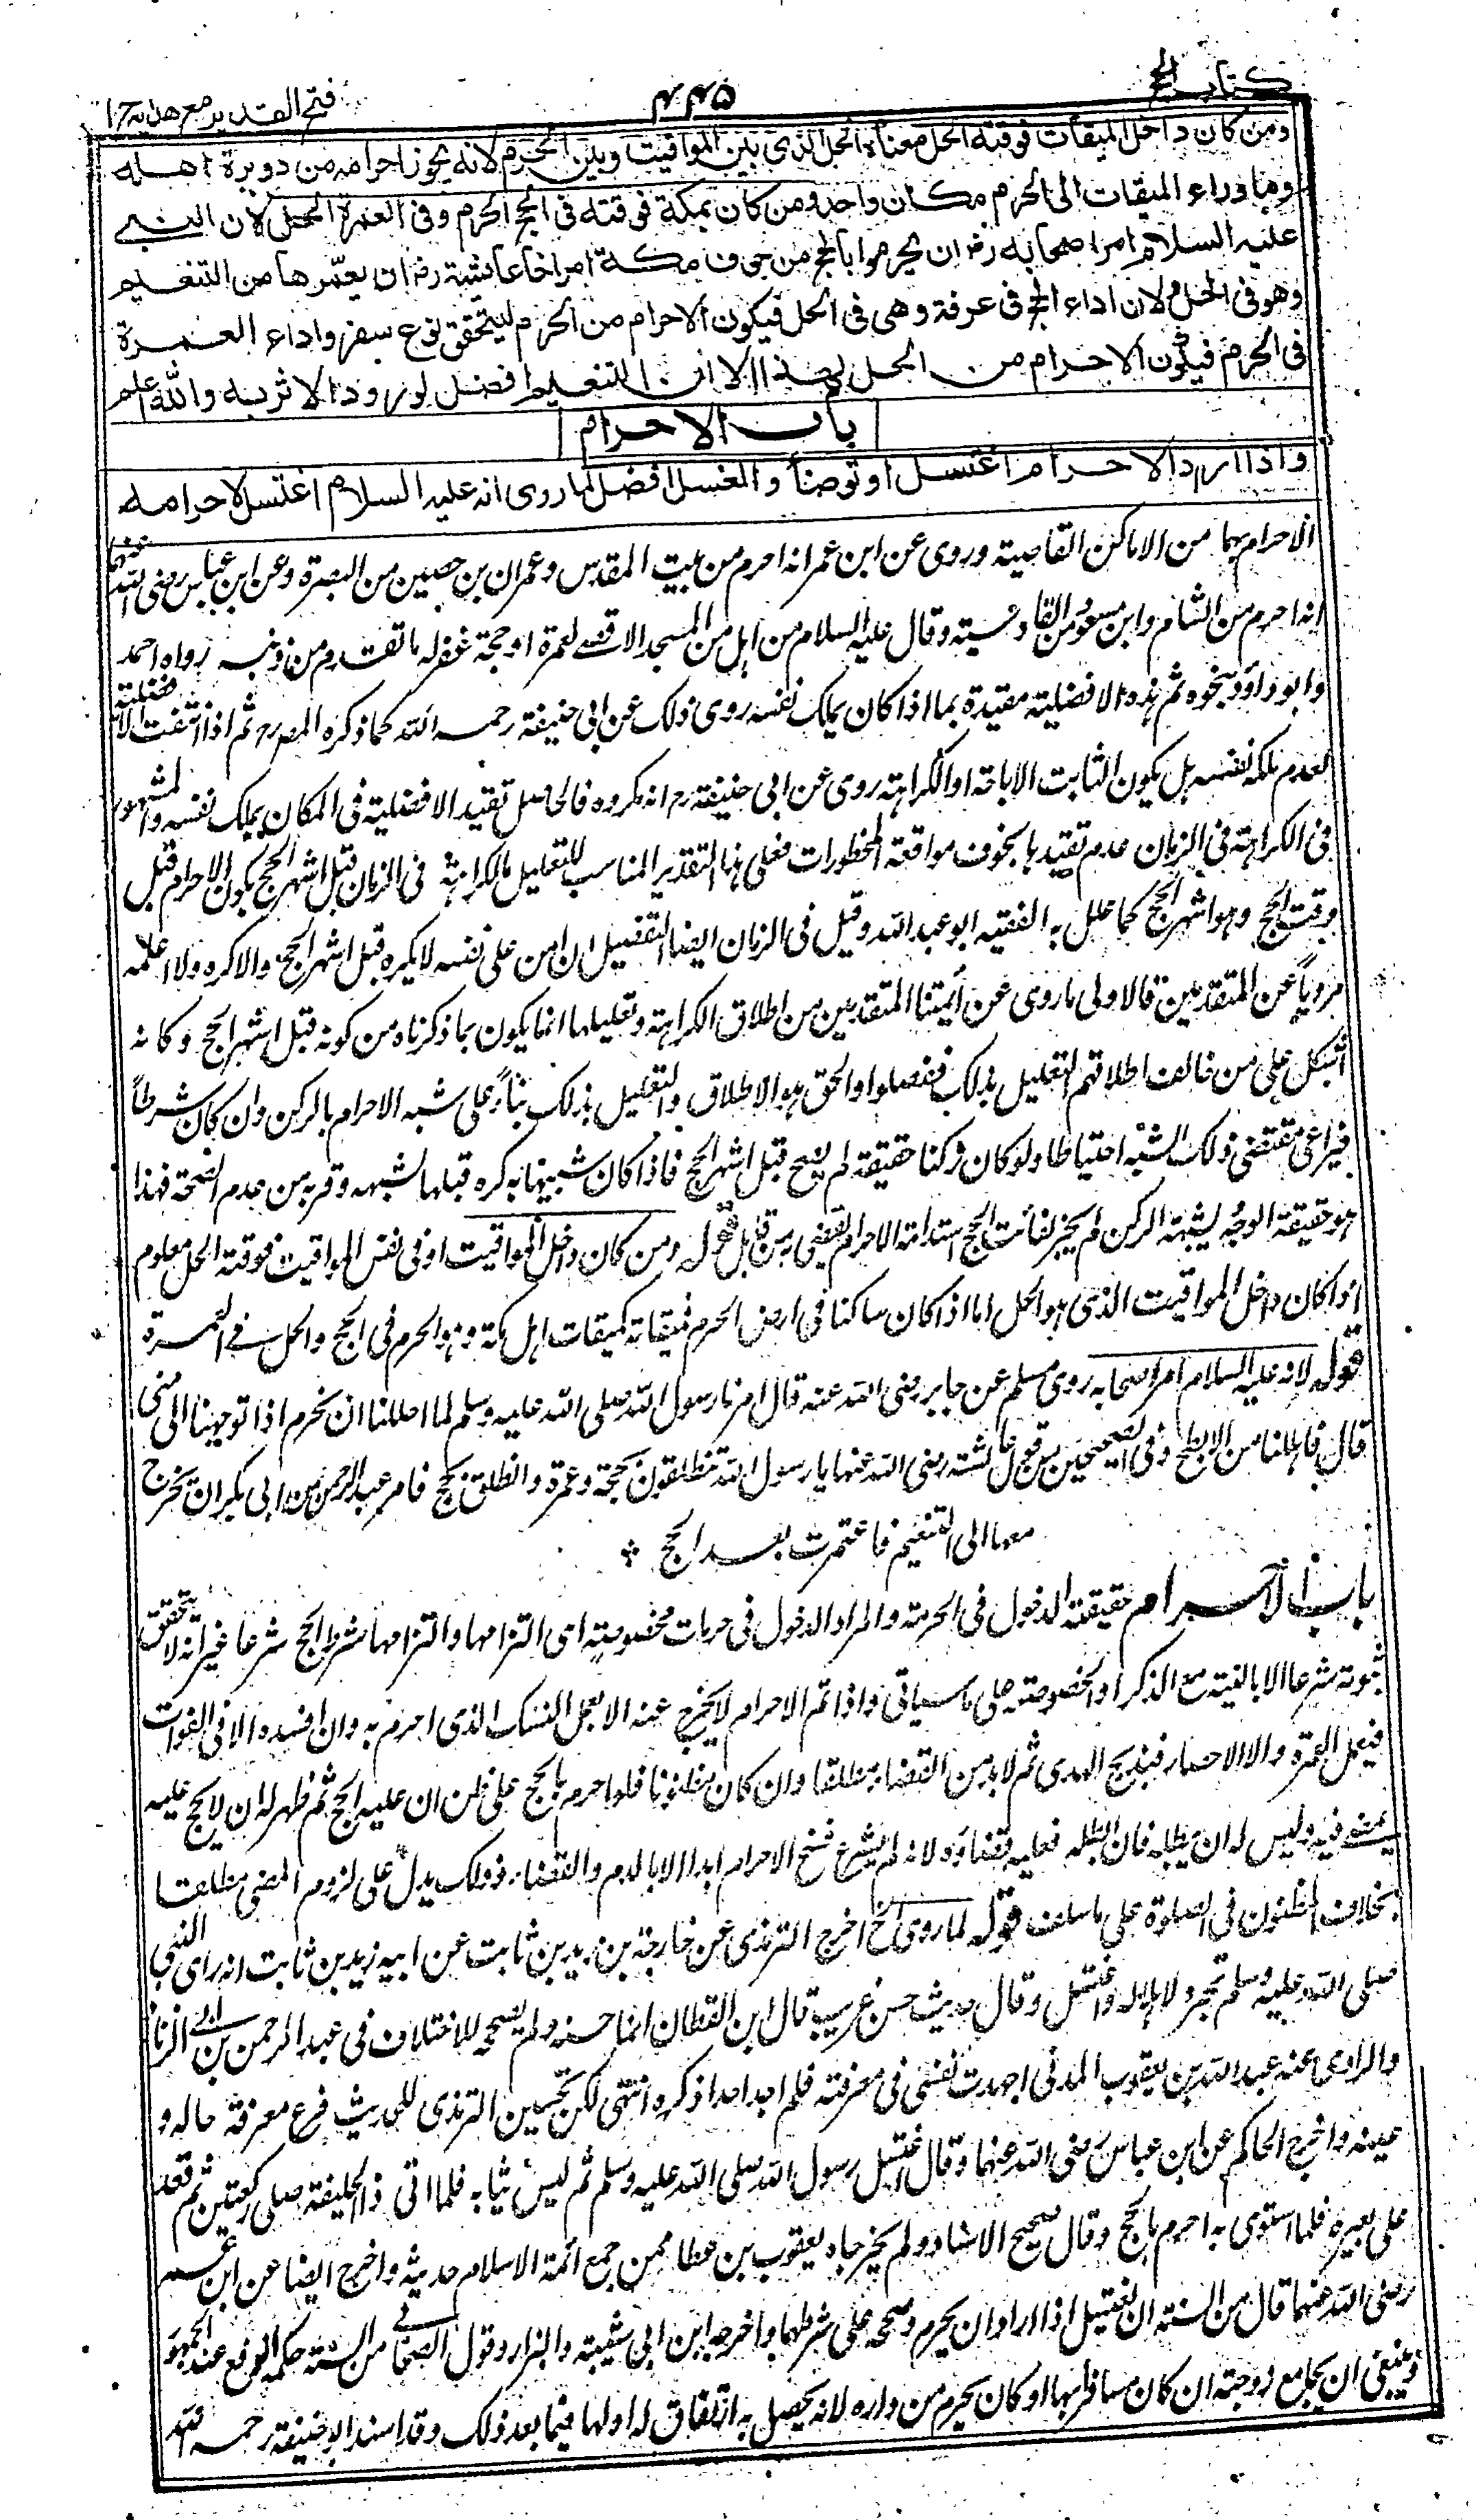 كتاب الحج
۴۴۵
فتح القدير مع هدايه ج ١
ومن كان داخل الميقات فوقته الحل معناه الحل الذى بين المواقيت وبين الحرم لانه يجوز احرامه من دويرة اهله
وما وراء الميقات الى الحرم مكان واحد ومن كان بمكة فوقته فى الحج الحرم وفى العمرة الحل لان النبى
عليه السلام امر اصحابه رض ان يحرموا بالحج من جوف مكة امر اخا عائشة رض ان يعمرها من التنعيم
وهو فى الحل ولان اداء الحج فى عرفة وهى فى الحل فيكون الاحرام من الحرم ليتحقق نوع سفر واداء العمرة
فى الحرم فيكون الاحرام من الحل لهذا الا ان التنعيم افضل لورود الاثر به والله اعلم
باب الاحرام
واذا اراد الاحرام اغتسل او توضأ والغسل افضل لما روى انه عليه السلام اغتسل لاحرامه
الاحرام بهما من الاماكن القاصية وروى عن ابن عمر انه احرم من بيت المقدس وعمران بن حصين من البصرة وعن ابن عباس رضى الله عنهما
انه احرم من الشام وابن مسعود من القادسية وقال عليه السلام من اهل من المسجد الاقصى لعمرة او حجة غفر له ما تقدم من ذنبه رواه احمد
وابو داؤد بنحوه ثم هذه الافضلية مقيدة بما اذا كان يملك نفسه روى ذلك عن ابى حنيفة رحمه الله كما ذكره المصرح ثم اذا انتفت الافضلية
لعدم ملكه نفسه بل يكون الثابت الاباحة او الكراهة روى عن ابى حنيفة رح انه مكروه فالحاصل تقييد الافضلية فى المكان بملك نفسه والمشهور
فى الكراهة فى الزمان عدم تقييدها بخوف مواقعة المحظورات فعلى هذا التقدير المناسب للتعليل للكراهة فى الزمان قبل اشهر الحج بكون الاحرام قبل
وقت الحج وهو اشهر الحج كما علل به الفقيه ابو عبد الله وقيل فى الزمان ايضا التفصيل ان امن على نفسه لا يكره قبل اشهر الحج والا كره ولا اعلمه
مرويا عن المتقدمين فالاولى ما روى عن أئمتنا المتقدمين من اطلاق الكراهة وتعليلها انما يكون بما ذكرناه من كونه قبل اشهر الحج وكانه
اشكل على من خالف اطلاقهم التعليل بذلك ففصلوا والحق هو الاطلاق والتعليل بذلك بناء على شبه الاحرام بالركن وان كان شرطاً
فيراعى مقتضى ذلك الشبه احتياطا ولو كان ركنا حقيقة لم يصح قبل اشهر الحج فاذا كان شبيها به كره قبلها لشبهه وقربه من عدم الصحة فهذا
هو حقيقة الوجه لشبهة الركن لم يجز لفائت الحج استدامة الاحرام ليقضى به من قابل قوله ومن كان داخل المواقيت او فى نفس المواقيت فوقته الحل معلوم
اذا كان داخل المواقيت الذى هو الحل اما اذا كان ساكنا فى ارض الحرم فميقاته كميقات اهل مكة وهو الحرم فى الحج والحل فى العمرة
قوله لانه عليه السلام امر اصحابه روى مسلم عن جابر رضى الله عنه قال امرنا رسول الله صلى الله عليه وسلم لما احللنا ان نحرم اذا توجهنا الى منى
قال فاهللنا من الابطح وفى الصحيحين من قول عائشة رضى الله عنها يا رسول الله تنطلقون بحجة وعمرة وانطلق بحج فامر عبد الرحمن بن ابى بكر ان يخرج
معها الى التنعيم فاعتمرت بعد الحج
باب الاحرام حقيقة الدخول فى الحرمة والمراد الدخول فى حرمات مخصوصة اى التزامها والتزامها شرط الحج شرعا غير انه لا يتحقق
ثبوته شرعا الا بالنية مع الذكر او الخصوصية على ما سياتى واذا تم الاحرام لا يخرج عنه الا بعمل النسك الذى احرم به وان افسده الا فى الفوات
فيعمل العمرة والا الاحصار فبذبح الهدى ثم لا بد من القضاء مطلقا وان كان مظنونا فلو احرم بالحج على ظن ان عليه الحج ثم ظهر له ان لا حج عليه
يمضى فيه وليس له ان يبطله فان ابطله فعليه قضاؤه لانه لم يشرع فسخ الاحرام ابدا الا بالدم والقضاء وذلك يدل على لزوم المضى مطلقا
بخلاف المظنون فى الصلوة على ما سلف قوله لما روى الخ اخرج الترمذى عن خارجة بن زيد بن ثابت عن ابيه زيد بن ثابت انه راى النبى
صلى الله عليه وسلم تجرد لاهلاله واغتسل وقال حديث حسن غريب قال ابن القطان انما حسنه ولم يصححه للاختلاف فى عبد الرحمن بن ابى الزناد
والراوى عنه عبد الله بن يعقوب المدنى اجهدت نفسى فى معرفته فلم اجد احدا ذكره انتهى لكن تحسين الترمذى للحديث فرع معرفة حاله و
عينه واخرج الحاكم عن ابن عباس رضى الله عنهما وقال اغتسل رسول الله صلى الله عليه وسلم ثم لبس ثيابه فلما اتى ذا الحليفة صلى ركعتين ثم قعد
على بعيره فلما استوى به احرم بالحج وقال صحيح الاسناد ولم يخرجاه يعقوب بن عطا ممن جمع ائمة الاسلام حديثه واخرج ايضا عن ابن عمر
رضى الله عنهما قال من السنة ان يغتسل اذا اراد ان يحرم وصححه على شرطهما واخرجه ابن ابى شيبة والبزار وقول الصحابى من السنة حكمه الرفع عند الجمهور
وينبغى ان يجامع زوجته ان كان مسافرا بها او كان يحرم من داره لانه يحصل به ارتفاق له او لها فيما بعد ذلك وقد اسند ابو حنيفة رحمه الله